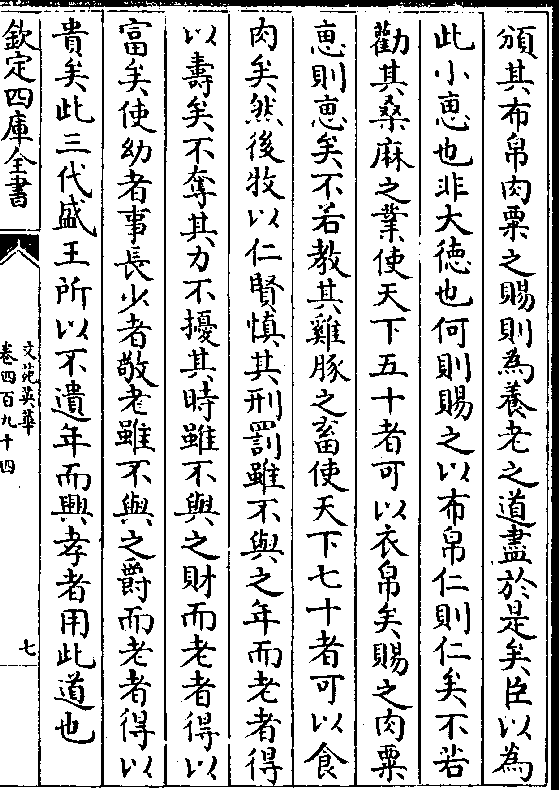 頒其布帛肉粟之賜則為養老之道盡於是矣臣以為
此小恵也非大徳也何則賜之以布帛仁則仁矣不若
勸其桑麻之業使天下五十者可以衣帛矣賜之肉粟
恵則恵矣不若教其雞豚之畜使天下七十者可以食
肉矣然後牧以仁賢慎其刑罰雖不與之年而老者得
以壽矣不奪其力不擾其時雖不與之財而老者得以
富矣使幼者事長少者敬老雖不與之爵而老者得以
貴矣此三代盛王所以不遺年而興孝者用此道也
欽定四庫全書
文苑英華
卷四百九十四
七